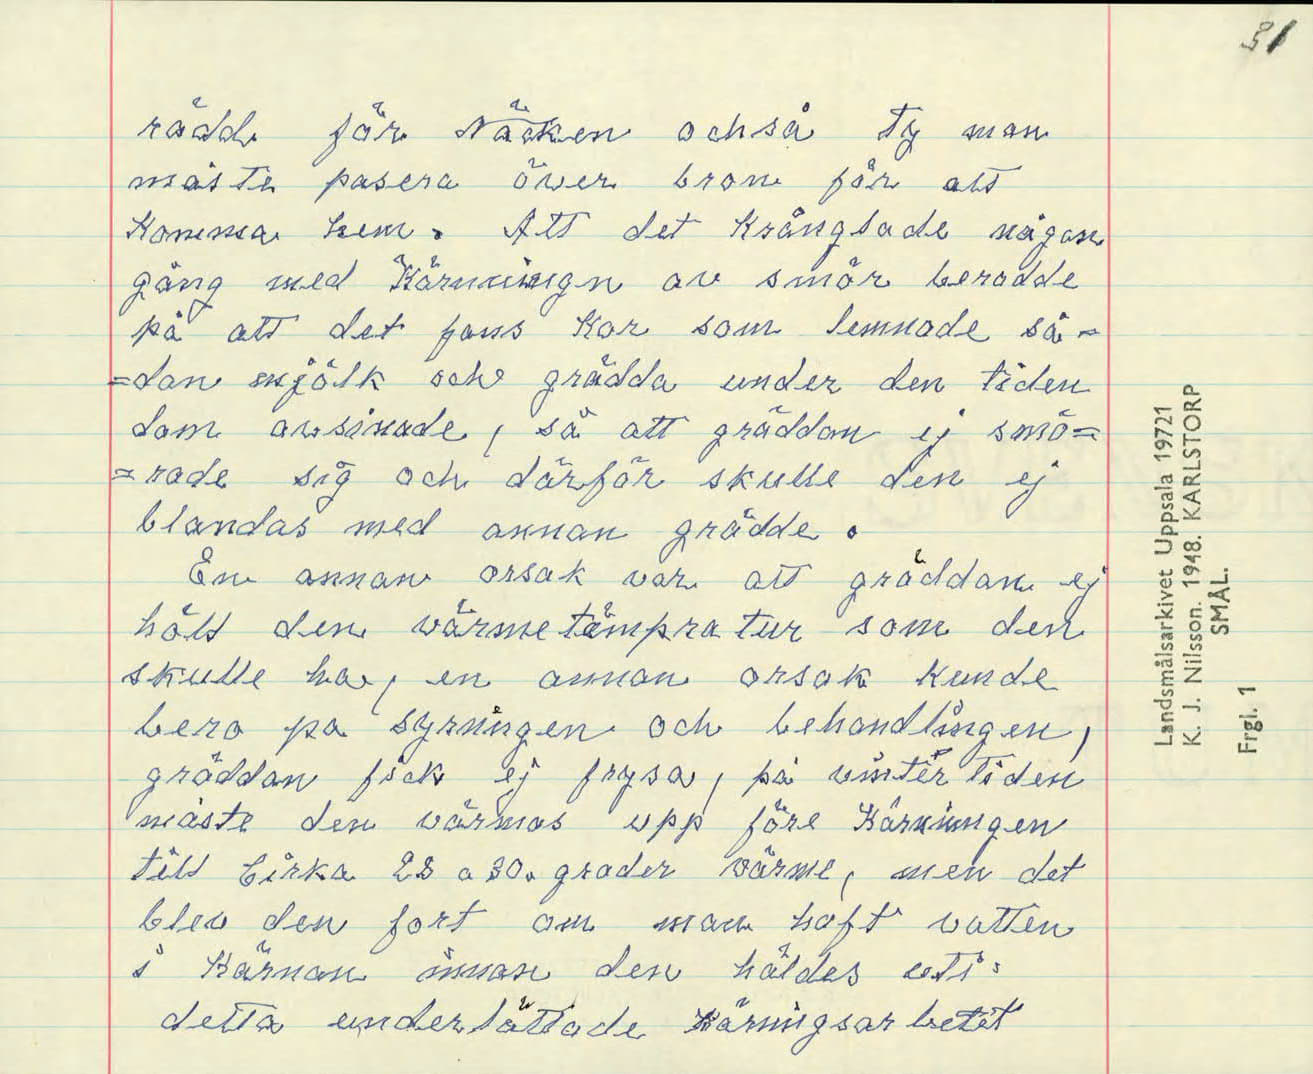 31
rädd för Näcken ochså ty man
måste pasera över bron för att
Komma hem. Att det Krånglade någon
gång med Kärnningn av smör berodde
på att det fans Kor som lemnade så=
=dan mjölk och grädda under den tiden
dom avsinade, så att gräddan ej smö=
=rade sig och därför skulle den ej
blandas med annan grädde.
En annan orsak var att gräddan ej
höll den värmetämpratur som den
skulle ha, en annan orsak Kunde
bero pa syrningen och behandlingen,
gräddan fick ej frysa, på vinter tiden
måste den värmas upp före Kärnningen
till Cirka 28 a 30. grader värme, men det
blev den fort om man haft vatten
i Kärnan innan den häldes uti:
detta underlättade Kärningsarbetet
Landsmålsarkivet Uppsala 19721
K. J. Nilsson. 1948. KARLSTORP
SMÅL.
Frgl. 1